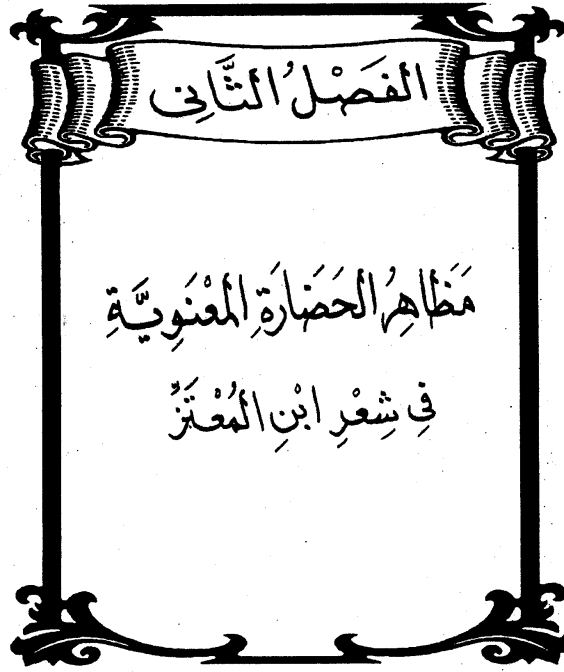 الفَصْلُ الثَّانِى
مَظَاهِرُ الحَضَارَةِ المَعْنَوِيَّةِ
فِى شِعْرِ ابْنِ المُعْتَزِّ